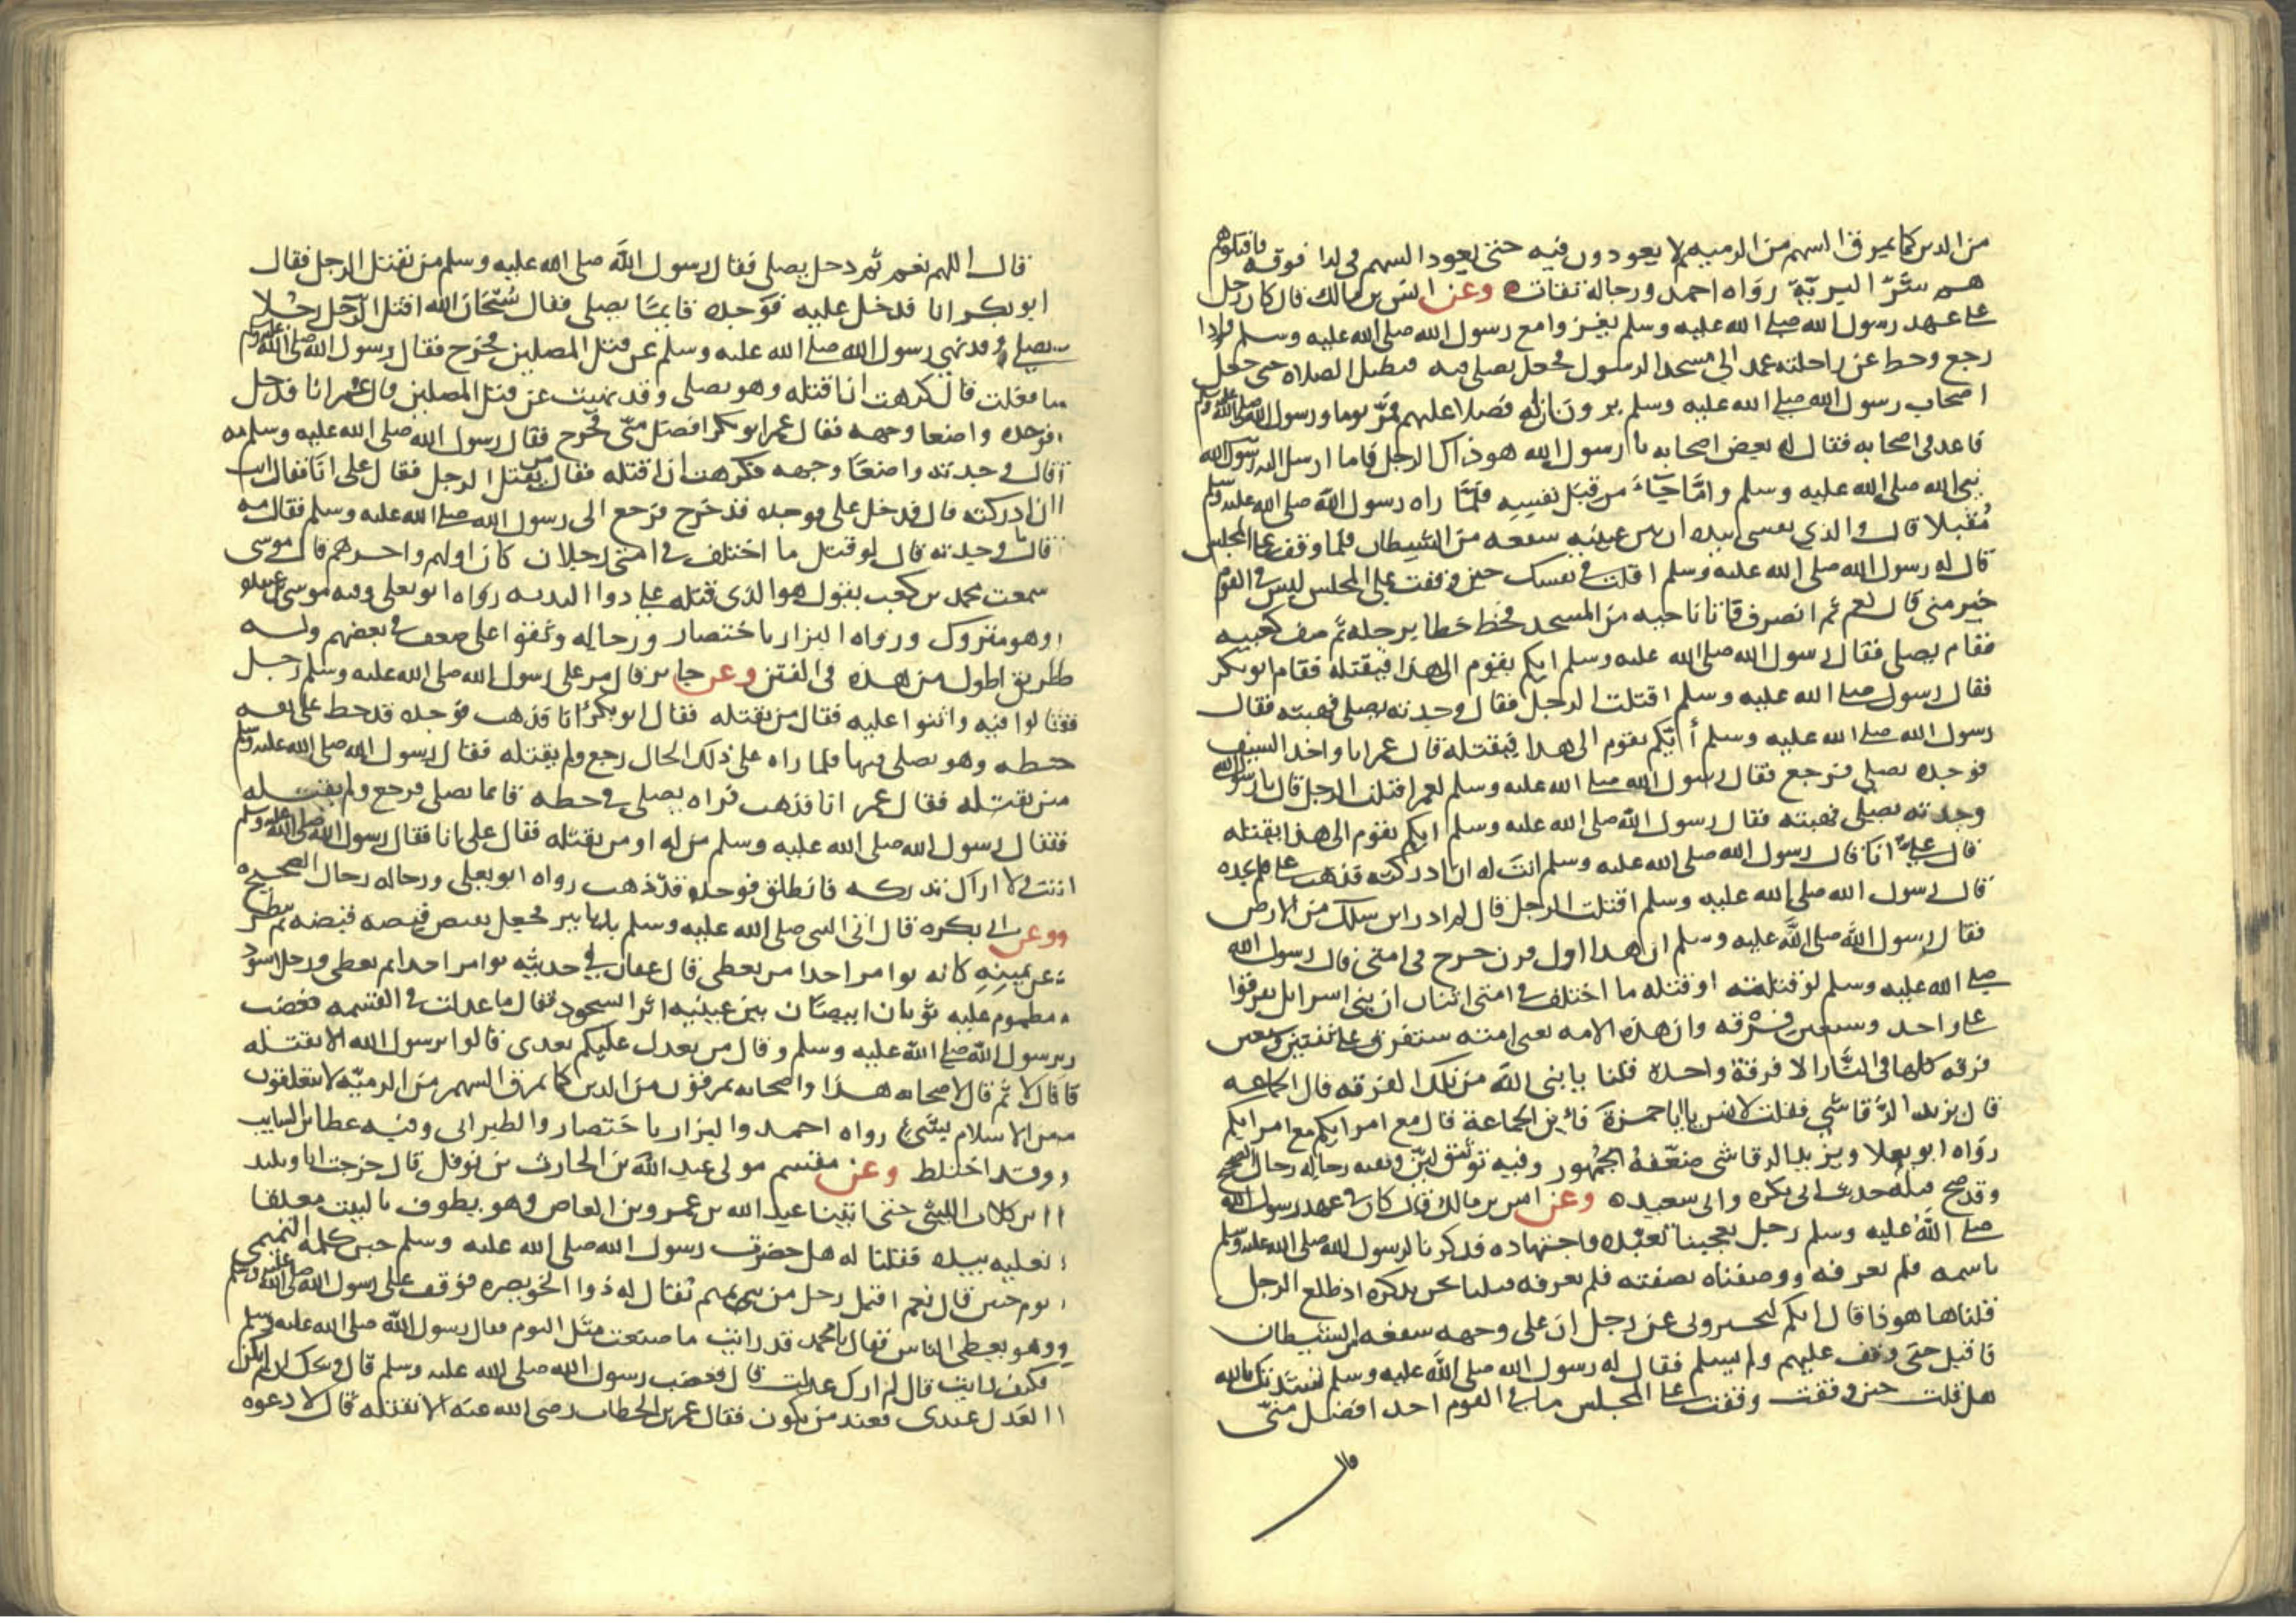 من الدين كما يمرق السهم من الرميه ثم لا يعودون فيه حتى يعود السهم في لذا فوقه فاقتلوهم
هم شرّ البريّة رواه احمد ورجاله ثقات وعن انس بن مالك قال كان رجل
على عهد رسول الله صلى الله عليه وسلم يغزوا مع رسول الله صلى الله عليه وسلم فاذا
رجع وحط عن راحلته عمد الى مسجد الرسول فجعل يصلي فيه فيطيل الصلاه حتى جعل
اصحاب رسول الله صلى الله عليه وسلم يرون ان له فضلا عليهم فمرّ يوما ورسول الله صلى الله عليه وسلم
قاعد في اصحابه فقال له بعض اصحابه يا رسول الله هو ذاك الرجل فاما ارسل اليه رسول الله
نبي الله صلى الله عليه وسلم وامّا جآء من قبل نفسه فلمّا راه رسول الله صلى الله عليه وسلم
مُقبلا قال والذي نفسي بيده ان بين عينيه سفعه من الشيطان فلما وقف على المجلس
قال له رسول الله صلى الله عليه وسلم اقلت في نفسك حين وقفت على المجلس ليس في القوم
خير مني قال نعم ثم انصرف فاتا ناحيه من المسجد فخط خطا برجله ثم صف كعبيه
فقام يصلي فقال رسول الله صلى الله عليه وسلم ايكم يقوم الى هذا فيقتله فقام ابو بكر
فقال رسول صلى الله عليه وسلم اقتلت الرجل فقال وجدته يصلي فهبته فقال
رسول الله صلى الله عليه وسلم أيّكم يقوم الى هذا فيقتله قال عمر انا واخذ السيف
فوجده يصلي فرجع فقال رسول الله صلى الله عليه وسلم لعمر اقتلت الرجل قال يا رسول الله
وجدته يصلي فهبته فقال رسول الله صلى الله عليه وسلم ايكم يقوم الى هذا يقتله
قال علي انا قال رسول الله صلى الله عليه وسلم انت له ان ادركته فذهب علي فلم يجده
قال رسول الله صلى الله عليه وسلم اقتلت الرجل قال لم ادر اين سلك من الارض
فقال رسول الله صلى الله عليه وسلم ان هذا اول قرن خرج في امتي قال رسول الله
صلى الله عليه وسلم لو قتلته او قتله ما اختلف في امتي اثنان ان بني اسرايل تفرقوا
على واحد وسبعين فرقه وان هذه الامه يعني امته ستفترق على ثنتين وسبعين
فرقه كلها في النّار الا فرقة واحده قلنا يا نبي الله من تلك الفرقه قال الجماعه
قال يزيد الرّقاشي فقلت لانس يا ابا حمزة فاين الجماعة قال مع امرايكم مع امرايكم
رواه ابو يعلا ويزيد الرقاشي ضعّفهُ الجُمهور وفيه توثيق ليّن وبقيه رجاله رجال الصحيح
وقد صح قبله حديث ابي بكره وابي سعيده وعن انس بن مالك قال كان في عهد رسول الله
صلى اللهُ عليه وسلم رجل يعجبنا تعبّده واجتهاده فذكرناه لرسول الله صلى الله عليه وسلم
باسمه فلم يعرفه ووصفناه بصفته فلم يعرفه فبينا نحن نذكره اذ طلع الرجل
قلناها هوذا قال انكم لتخبروني عن رجل ان على وجهه سفعه من الشيطان
فاقبل حتى وقف عليهم ولم يسلم فقال له رسول الله صلى الله عليه وسلم نشدتك بالله
هل قلت حين وقفت وقفت على المجلس ما في القوم احد افضل منّي
قال
قال اللهم نعم ثم دخل يصلي فقال رسول الله صلى الله عليه وسلم من يقتل الرجل فقال
ابو بكر انا فدخل عليه فوجده قايمًا يصلي فقال سُبْحَان الله اقتل الرّجل رجُلا
يصلي وقد نهى رسول الله صلى الله عليه وسلم عن قتل المصلين فخرج فقال رسول الله صلى الله عليه وسلم
ما فعلت قال كرهت ان اقتله وهو يصلي وقد نهيت عن قتل المصلين قال عمر انا فدخل
فوجده واضعا وجهه فقال عمر ابو بكر افضل منّي فخرج فقال رسول الله صلى الله عليه وسلم مه
قال وجدته واضعًا وجهه فكرهت ان اقتله فقال من يقتل الرجل فقال علي انا فقال انت
ان ادركته قال فدخل علي فوجده قد خرج فرجع الى رسول الله صلى الله عليه وسلم فقال مه
قال وجدته قال لو قتل ما اختلف في امتي رجلان كان اولهم واخرهم قال موسى
سمعت محمد بن كعب يقول هو الذي قتله علي ذوا الثديه رواه ابو يعلى وفيه موسى بن عبيده
وهو متروك ورواه البزار باختصار ورجاله وثقوا على ضعف في بعضهم وله
طريق اطول من هذه في الفتن وعن جابر قال مر على رسول الله صلى الله عليه وسلم رجل
فقالوا فيه واثنوا عليه فقال من يقتله فقال ابو بكر انا فذهب فوجده قد خط على نفسه
خطه وهو يصلي فيها فلما راه على ذلك الحال رجع ولم يقتله فقال رسول الله صلى الله عليه وسلم
من يقتله فقال عمر انا فذهب فراه يصلي في خطه قائما يصلي فرجع ولم يقتله
فقال رسول الله صلى الله عليه وسلم من له او من يقتله فقال علي انا فقال رسول الله صلى الله عليه وسلم
انت ولا اراك تدركه فانطلق فوجده قد ذهب رواه ابو يعلى ورجاله رجال الصحيح
وعن ابي بكره قال اتي النبي صلى الله عليه وسلم بدنانير فجعل يقبض قبضه قبضه ثم ينظر
عن يمينِهِ كانه يوامر احدا من يعطي قال عفان في حديثه يوامر احدا ثم يعطي ورجل اسود
مطموم عليه ثوبان ابيضان بين عينيه اثر السجود فقال ما عدلت في القسمه فغضب
رسول الله صلى الله عليه وسلم وقال من يعدل عليكم بعدي قالوا يرسول الله الا نقتله
قال لا ثم قال لاصحابه هذا واصحابه يمرقون من الدين كما يمرق السهم من الرميّه لا يتعلقون
من الاسلام بشيءٍ رواه احمد والبزار باختصار والطبراني وفيه عطا بن السايب
وقد اختلط وعن مقسم مولى عبد الله بن الحارث بن نوفل قال خرجت انا وتليد
بن كلاب الليثي حتى اتينا عبد الله بن عمرو بن العاص وهو يطوف بالبيت معلقا
نعليه بيده فقلنا له هل حضرت رسول الله صلى الله عليه وسلم حين كلمه التميمي
يوم حنين قال نعم اقبل رجل من بني تميم يُقال له ذوا الخويصره فوقف على رسول الله صلى الله عليه وسلم
وهو يعطي الناس فقال يا محمد قد رايت ما صنعت مثل اليوم فقال رسول الله صلى الله عليه وسلم
فكيف رايت قال لم ارك عدلت قال فغضب رسول الله صلى الله عليه وسلم قال ويحك ان لم يكن
العدل عندي فعند من يكون فقال عمر بن الخطاب رضي الله عنه الا نقتله قال لا دعوه